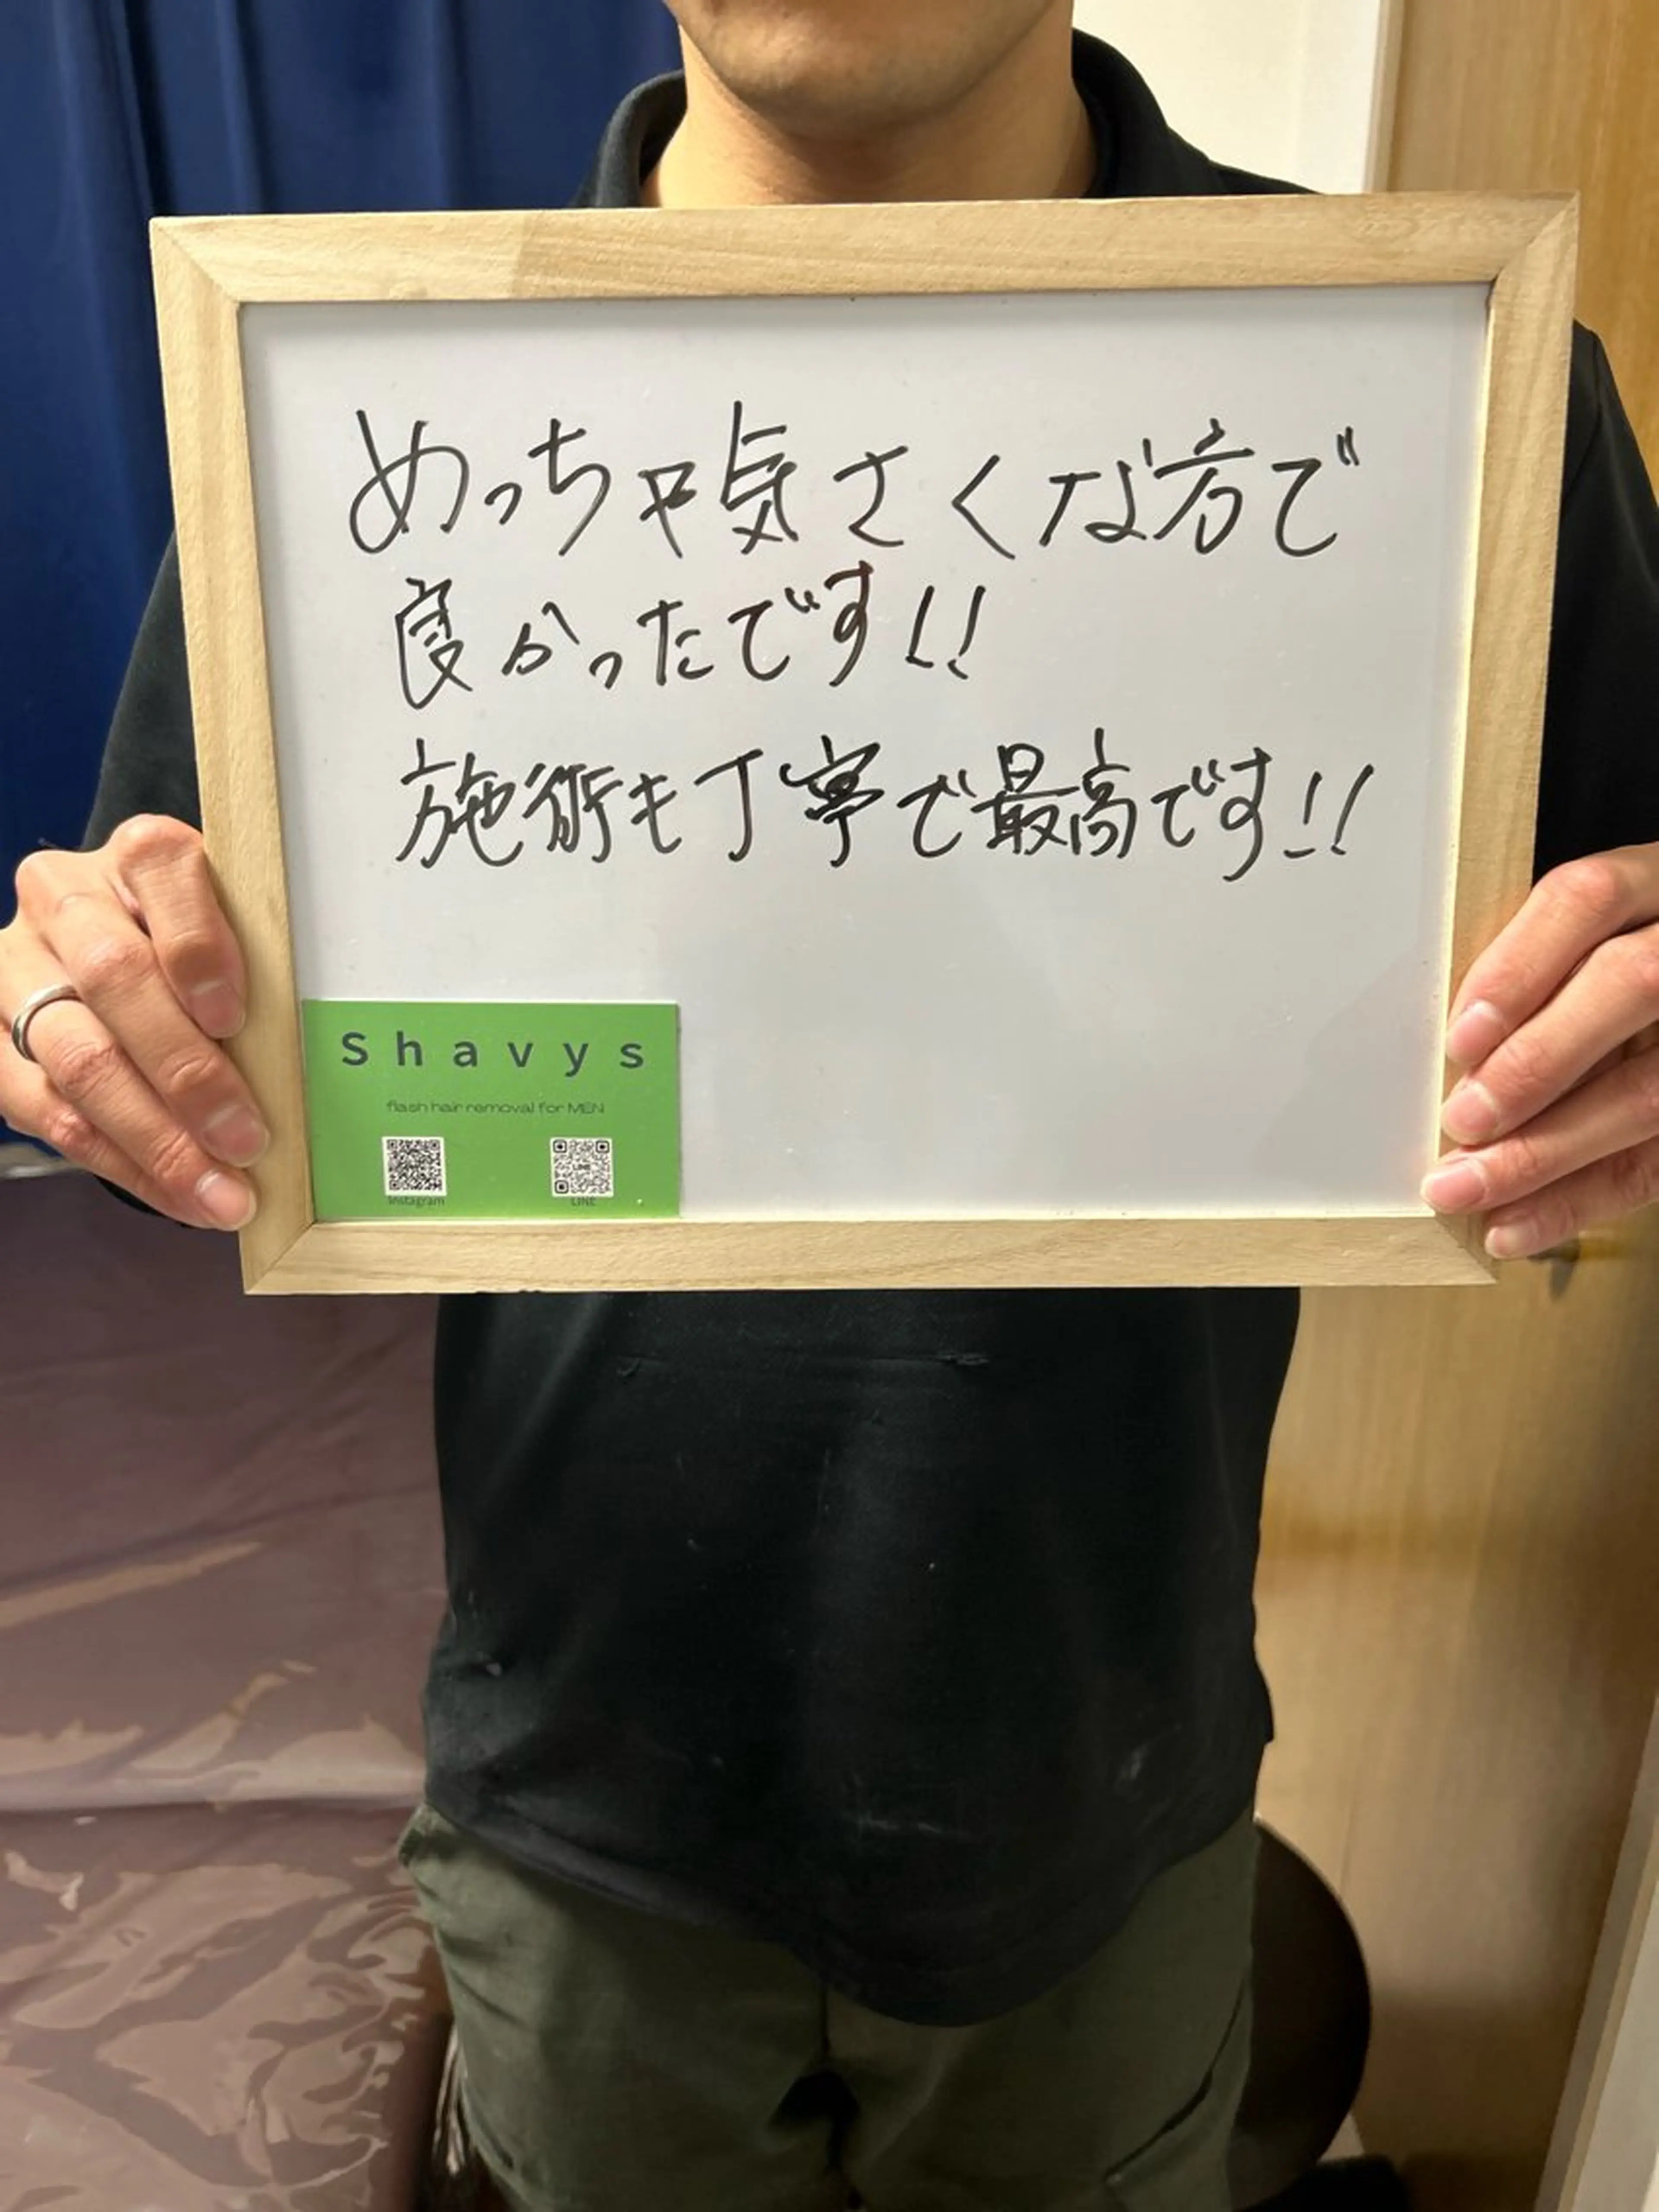 めっちゃ気さくな方で
良かったです!!
施術も丁寧で最高です!!
Shavys
flash hair removal for MEN
Instagram
LINE